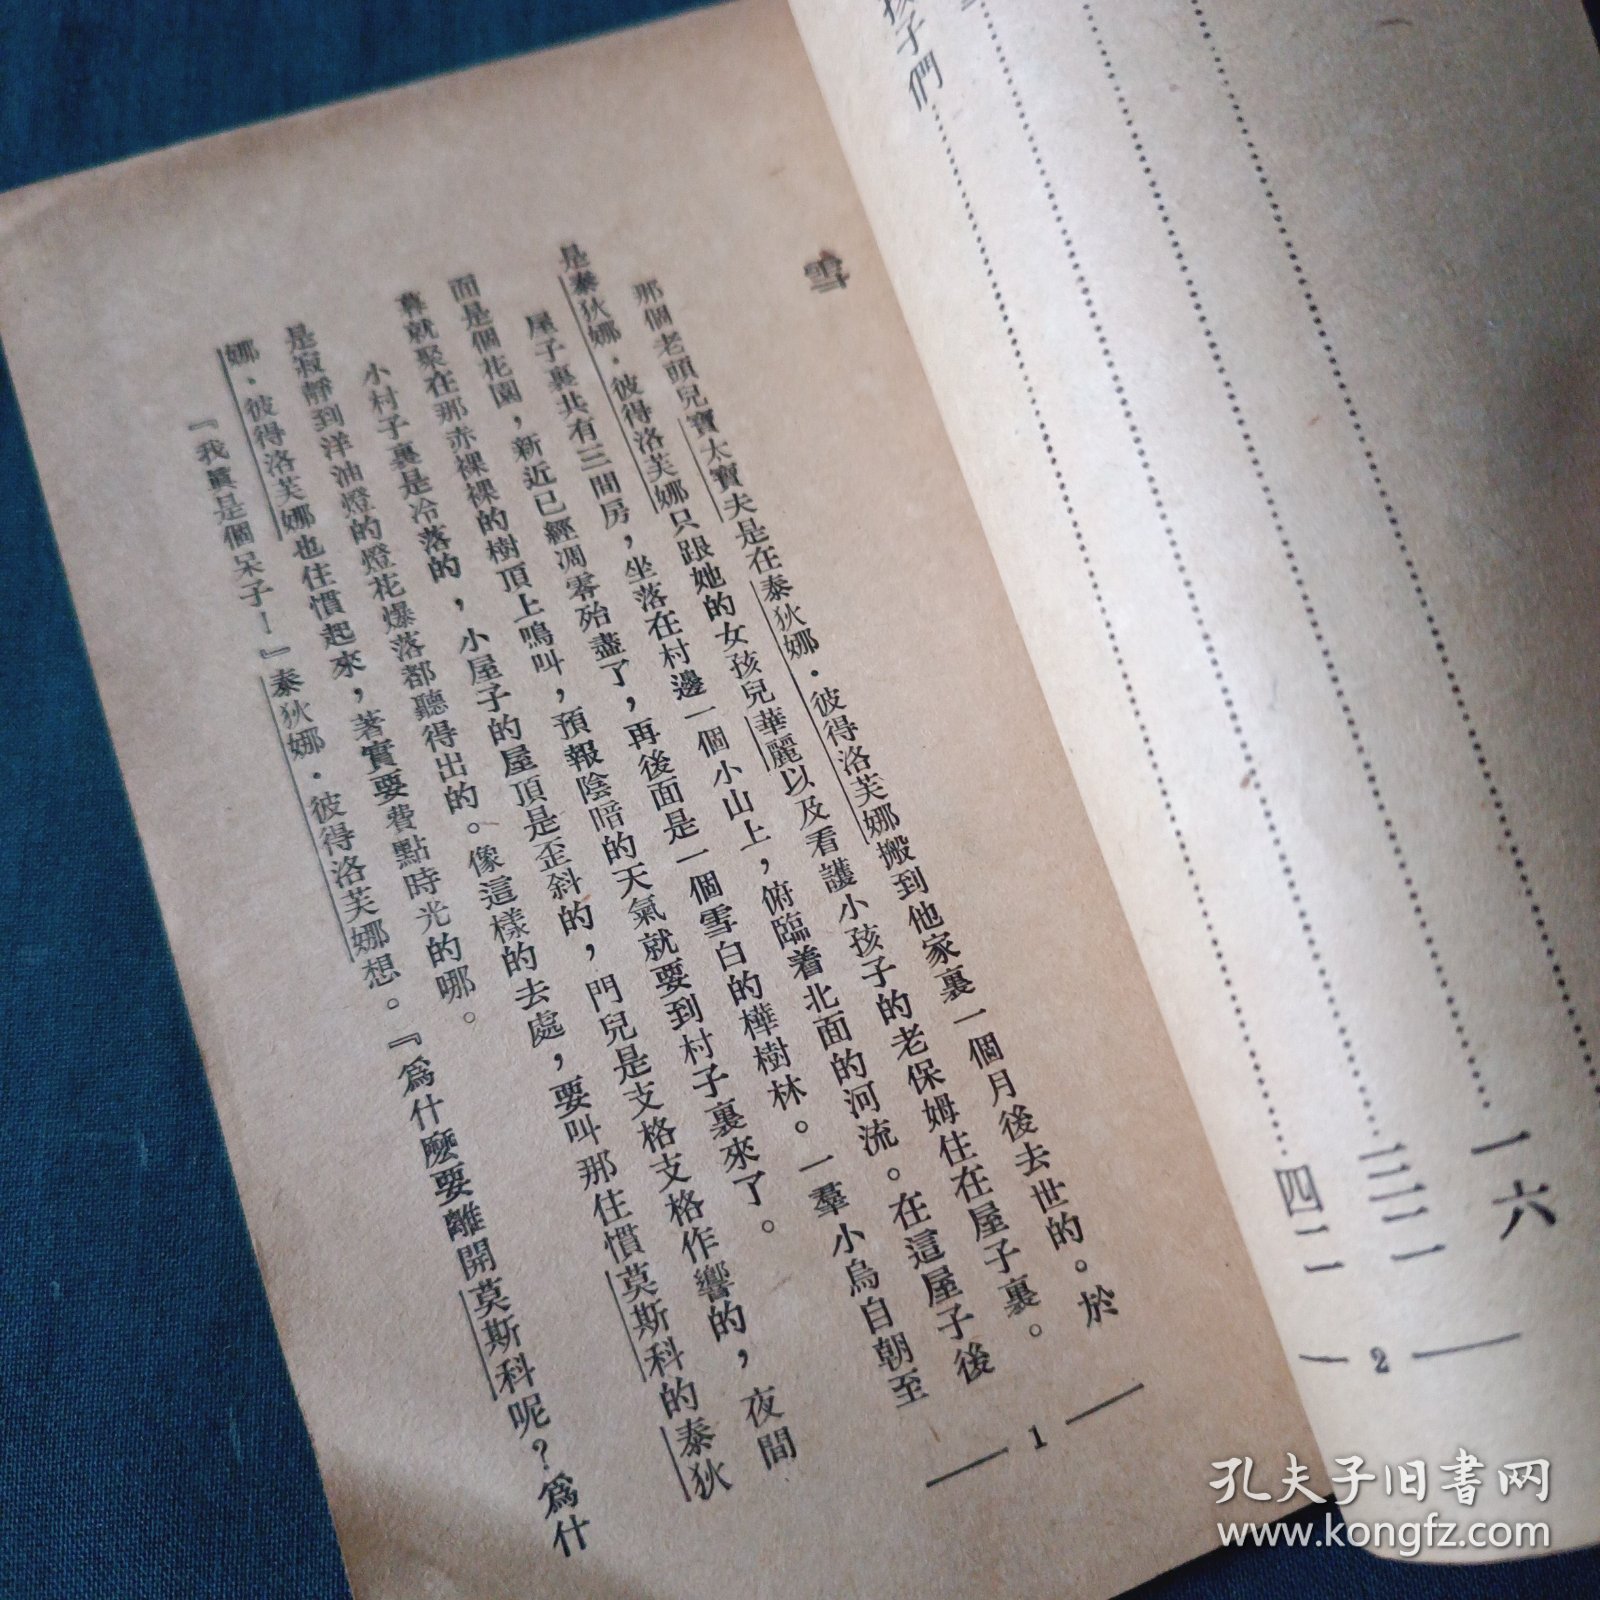 孩子們
一六
四二
2
雪
那個老頭兒寶太寶夫是在泰狄娜·彼得洛芙娜搬到他家裏一個月後去世的。於
是泰狄娜·彼得洛芙娜只跟她的女孩兒華麗以及看護小孩子的老保姆住在屋子裏。
屋子裏共有三間房,坐落在村邊一個小山上,俯臨着北面的河流。在這屋子後
面是個花園,新近已經凋零殆盡了,再後面是一個雪白的樺樹林。一羣小烏自朝至
暮就聚在那赤裸裸的樹頂上鳴叫,預報陰暗的天氣就要到村子裏來了。
小村子裏是冷落的,小屋子的屋頂是歪斜的,門兒是支格支格作響的,夜間
是寂靜到洋油燈的燈花爆落都聽得出的。像這樣的去處,要叫那住慣莫斯科的泰狄
娜·彼得洛芙娜也住慣起來,著實要費點時光的哪。
『我眞是個呆子!』泰狄娜·彼得洛芙娜想。『爲什麽要離開莫斯科呢?爲什
1
孔夫子旧书网
www.kongfz.com